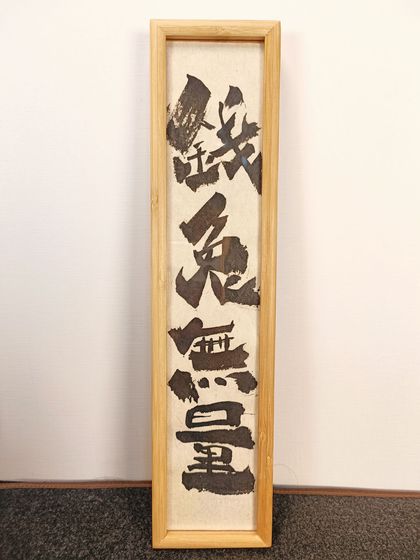 錢兔無量